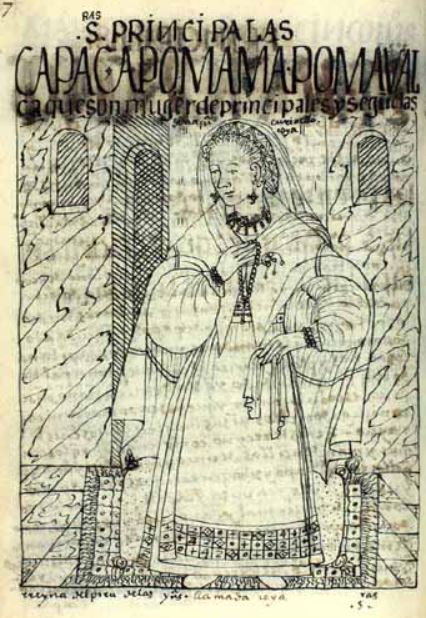 7
RAS
S. PRINCIPALAS
CAPACAPOMAMA·POMAVAL
ca que son muger de prencipales y seguelas
coya
rreyna del piru de las ynˢ. llamada coya
ras
·S·